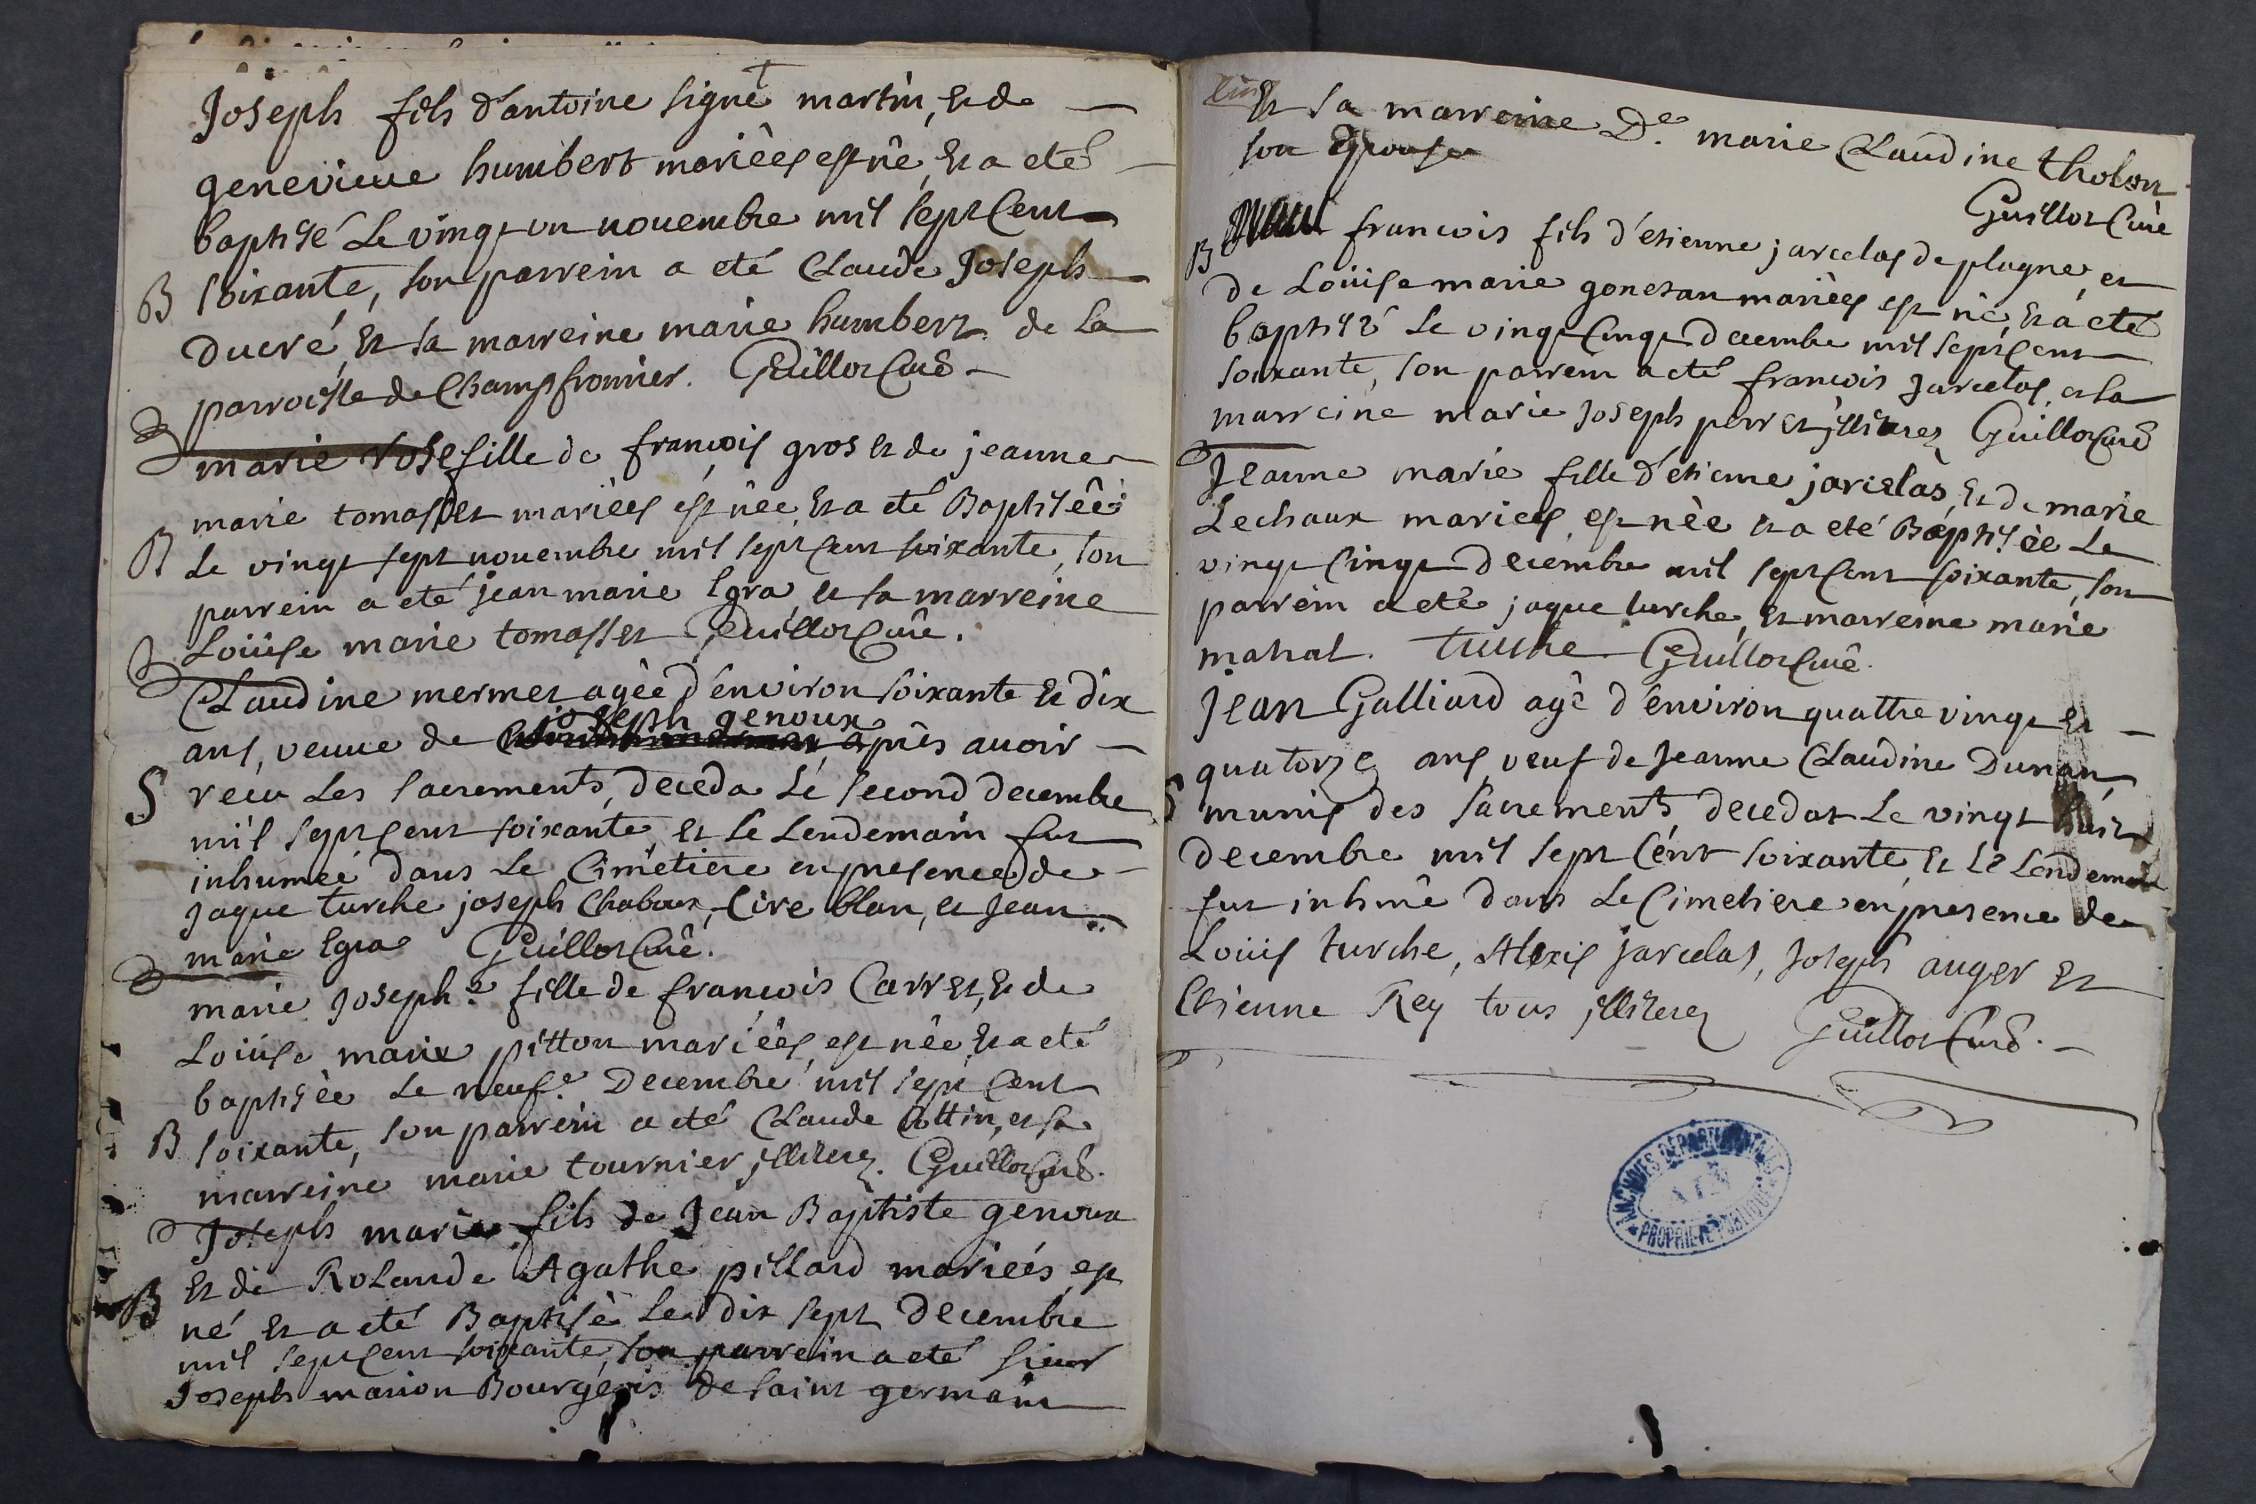 Joseph fils d'antoine signet martin, et de
genevieve humbert mariées est né, et a eté
baptisé Le vingt un novembre mil sept Cent
B soixante, son parrein a eté Claude Joseph
Ducré, et sa marreine marie humbert de La
parroisse de Champfromier. Guillot Curé
marie rose fille de françois gros et de jeanne
marie tomasset mariées est née, et a eté Baptisée
B Le vingt sept novembre mil sept Cent soixante, son
parrein a eté jean marie Egra, et sa marreine
Loüise marie tomasset Guillot Curé.
Claudine mermet agée d'environ soixante et dix
joseph genoux
ans, veuve de après avoir
S recu Les sacrements, deceda Le second decembre
mil sept Cent soixante, et Le Lendemain fut
inhumée dans Le Cimetiere en presence de
Jaque turche joseph Chaboux, Cire blan, et Jean
marie Egra Guillot Curé.
marie Josephe fille de françois Carret, et de
Loüise marie pitton mariées, est née, et a eté
baptisée Le neufe Decembre mil sept Cent
B soixante, son parrein a eté Claude Cottin, et sa
marreine marie tournier jllitérez. Guillot Curé.
Joseph marie fils de Jean Baptiste genoux
B et de Rolande Agathe pillard mariées est
né et a eté Baptisé Le dix sept Decembre
mil sept Cent soixante, son parrein a eté sieur
Joseph marion Bourgeois de saint germain
Et sa marreine De. marie Claudine tholon
son Epouse
Guillot Curé
B françois fils d'etienne jarcelas de plagne, et
de Loüise marie gonesan mariées est né, et a eté
baptisé Le vingt Cinq Decembre mil sept Cent
soixante, son parrein a eté françois Jarcelas, et la
marreine marie Joseph perret jllitérez Guillot Curé
Jeanne marie fille d'étienne jarcelas, et de marie
Lechaux mariées, est née et a eté Baptisée Le
vingt Cinq Decembre mil sept Cent soixante, son
parrein a eté jaque turche, et marreine marie
mahat. turche Guillot Curé.
Jean Galliard agé d'environ quattre vingt et
quatorze ans, veuf de Jeanne Claudine Dunan,
S munis des sacrements decedat Le vingt huit
decembre mil sept Cent soixante, et Le Lendemain
fut inhmé dans Le Cimetiere en presence de
Loüis turche, Alexis jarcelas, Joseph auger et
Etienne Rey tous jllitérez Guillot Curé.
ARCHIVES DÉPARTEMENTALES
AIN
PROPRIÉTÉ PUBLIQUE